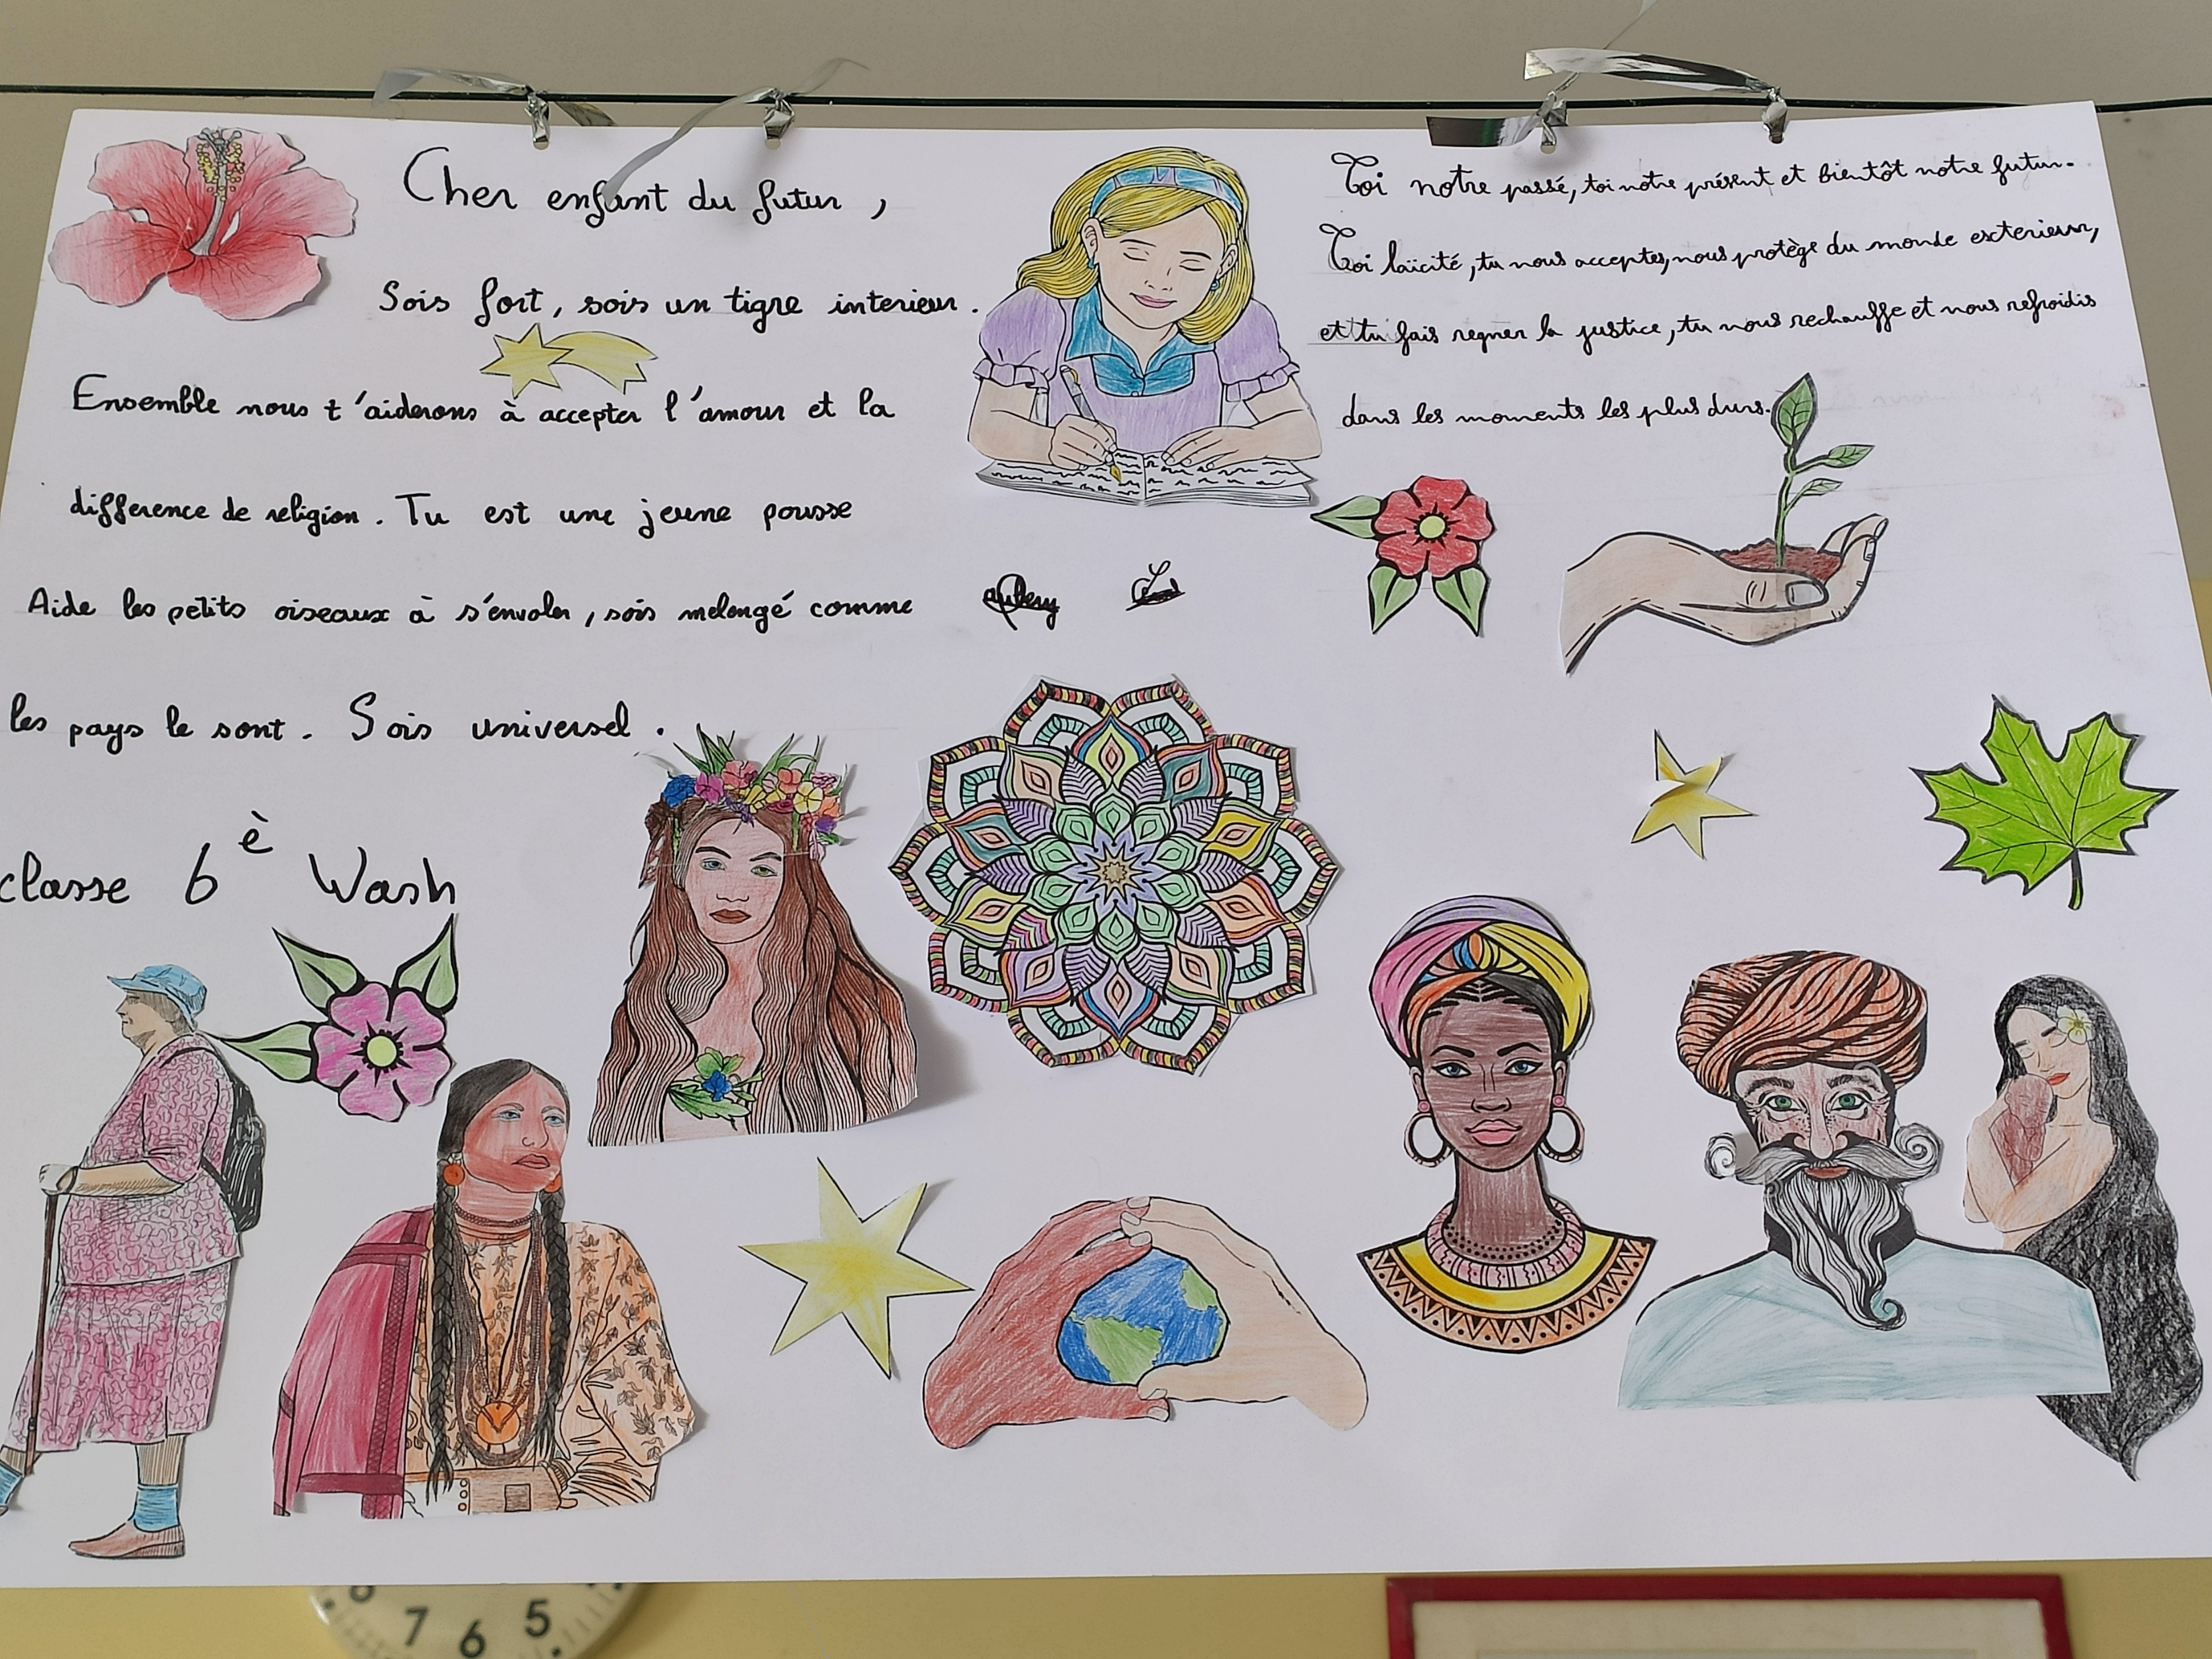 Cher enfant du futur,
Sois fort, sois un tigre interieur.
Ensemble nous t'aiderons à accepter l'amour et la
difference de religion. Tu est une jeune pousse
Aide les petits oiseaux à s'envoler, sois melengé comme
les pays le sont. Sois universel.
classe 6è Wash
Toi notre passé, toi notre présent et bientôt notre futur.
Toi laïcité, tu nous acceptes, nous protège du monde exterieur,
et tu fais regner la justice, tu nous rechauffe et nous refroidis
dans les moments les plus durs.
7 6 5